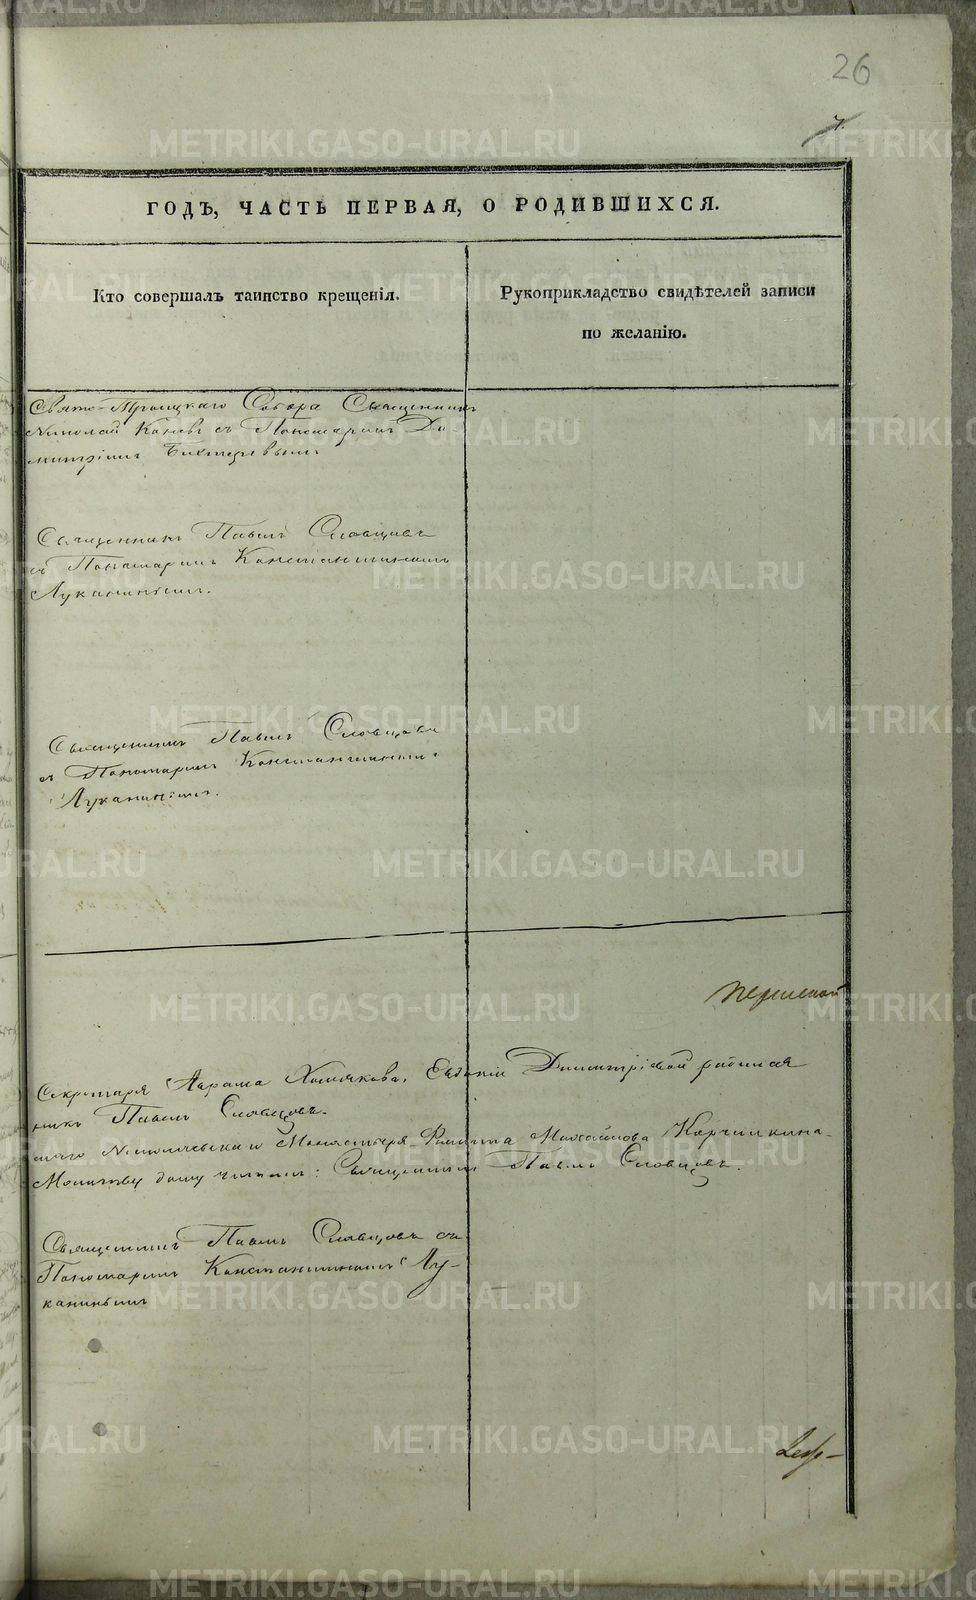 26
7.
ГОДЪ, ЧАСТЬ ПЕРВАЯ, О РОДИВШИХСЯ.
Кто совершалъ таинство крещенія.
Рукоприкладство свидѣтелей записи
по желанію.
Свято-Троицкаго Собора Священникъ
Николай Каневъ съ Пономаремъ Ди-
митріемъ
Священникъ Павелъ Словцовъ
съ Пономаремъ Константиномъ
Луканинымъ.
Священникъ Павелъ Словцовъ
съ Пономаремъ Константиномъ
Луканинымъ.
Секретаря Аврама Хомякова, Димитріевой
никъ Павелъ Словцовъ.
Монастыря Филипа Михайлова
Молитву далъ Священникъ Павелъ Словцовъ.
Священникъ Павелъ Словцовъ съ
Пономаремъ Константиномъ Лу-
канинымъ
METRIKI.GASO-URAL.RU